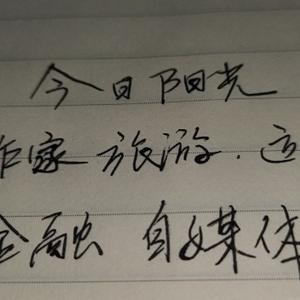 今日阳光
作家旅游.这
金融 自媒体